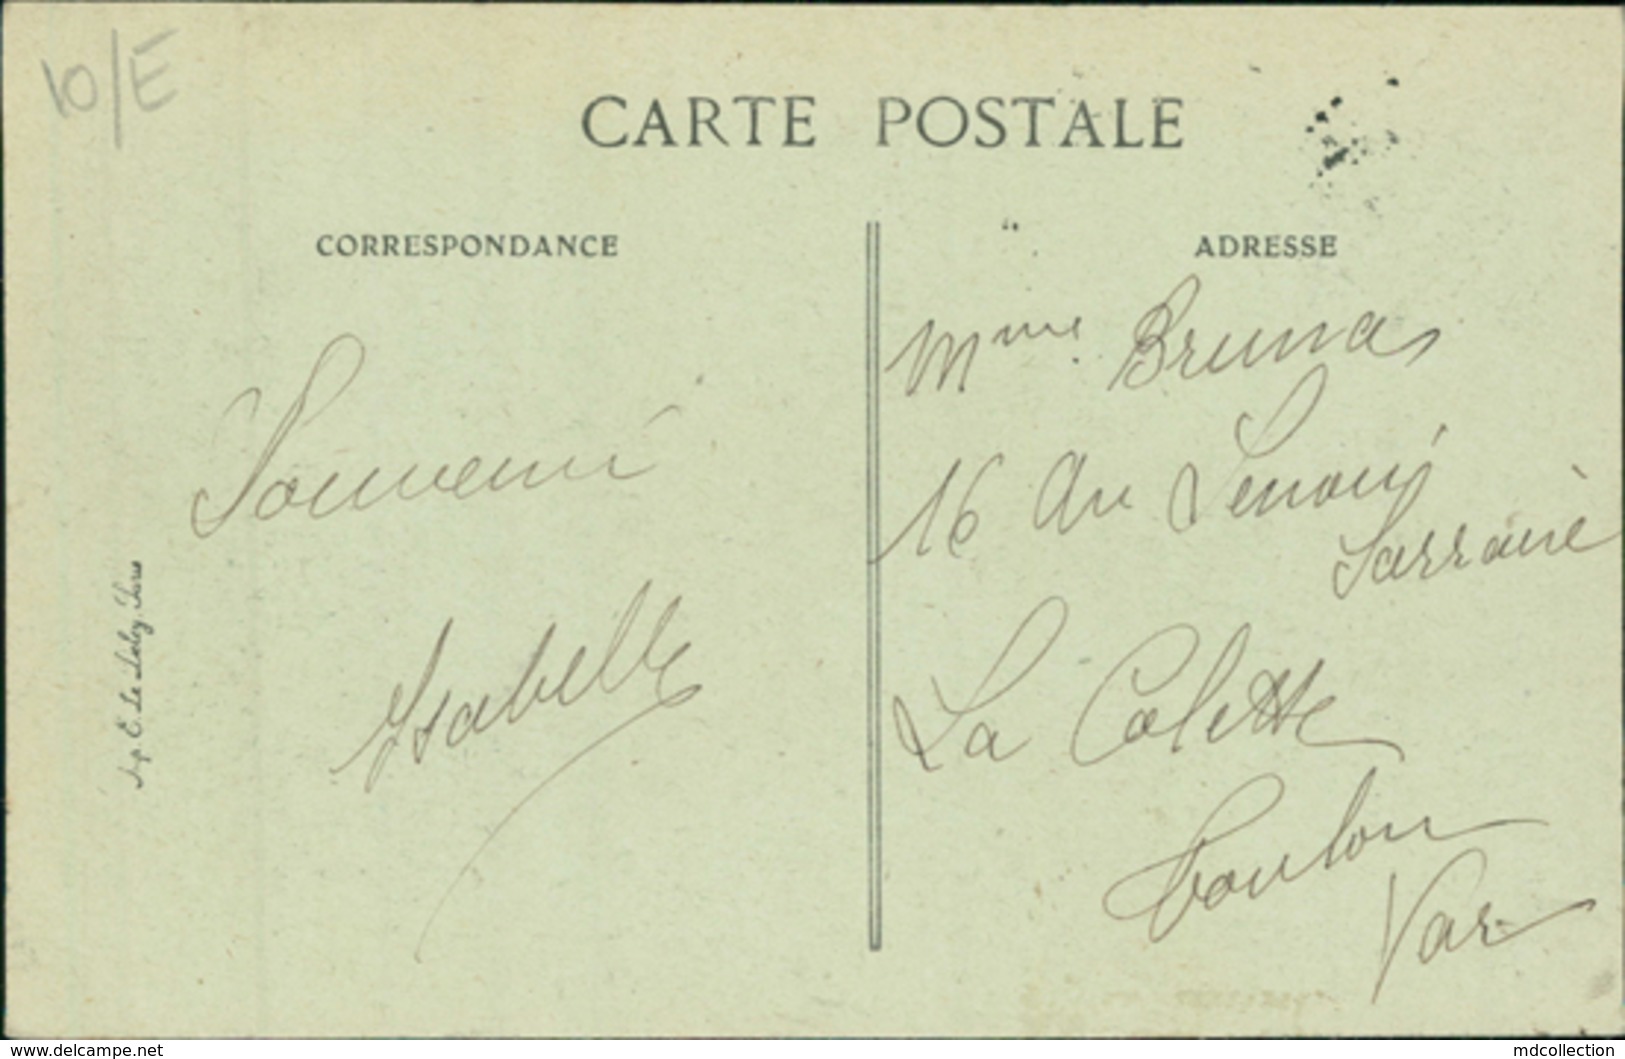 10/E
CARTE POSTALE
CORRESPONDANCE
ADRESSE
Souvenir
Isabelle
Mme Brunas
16 Au Lenoir
Sarraire
La Colette
Toulon
Var
Imp. E. Le Deley, Paris
www.delcampe.net
mdcollection